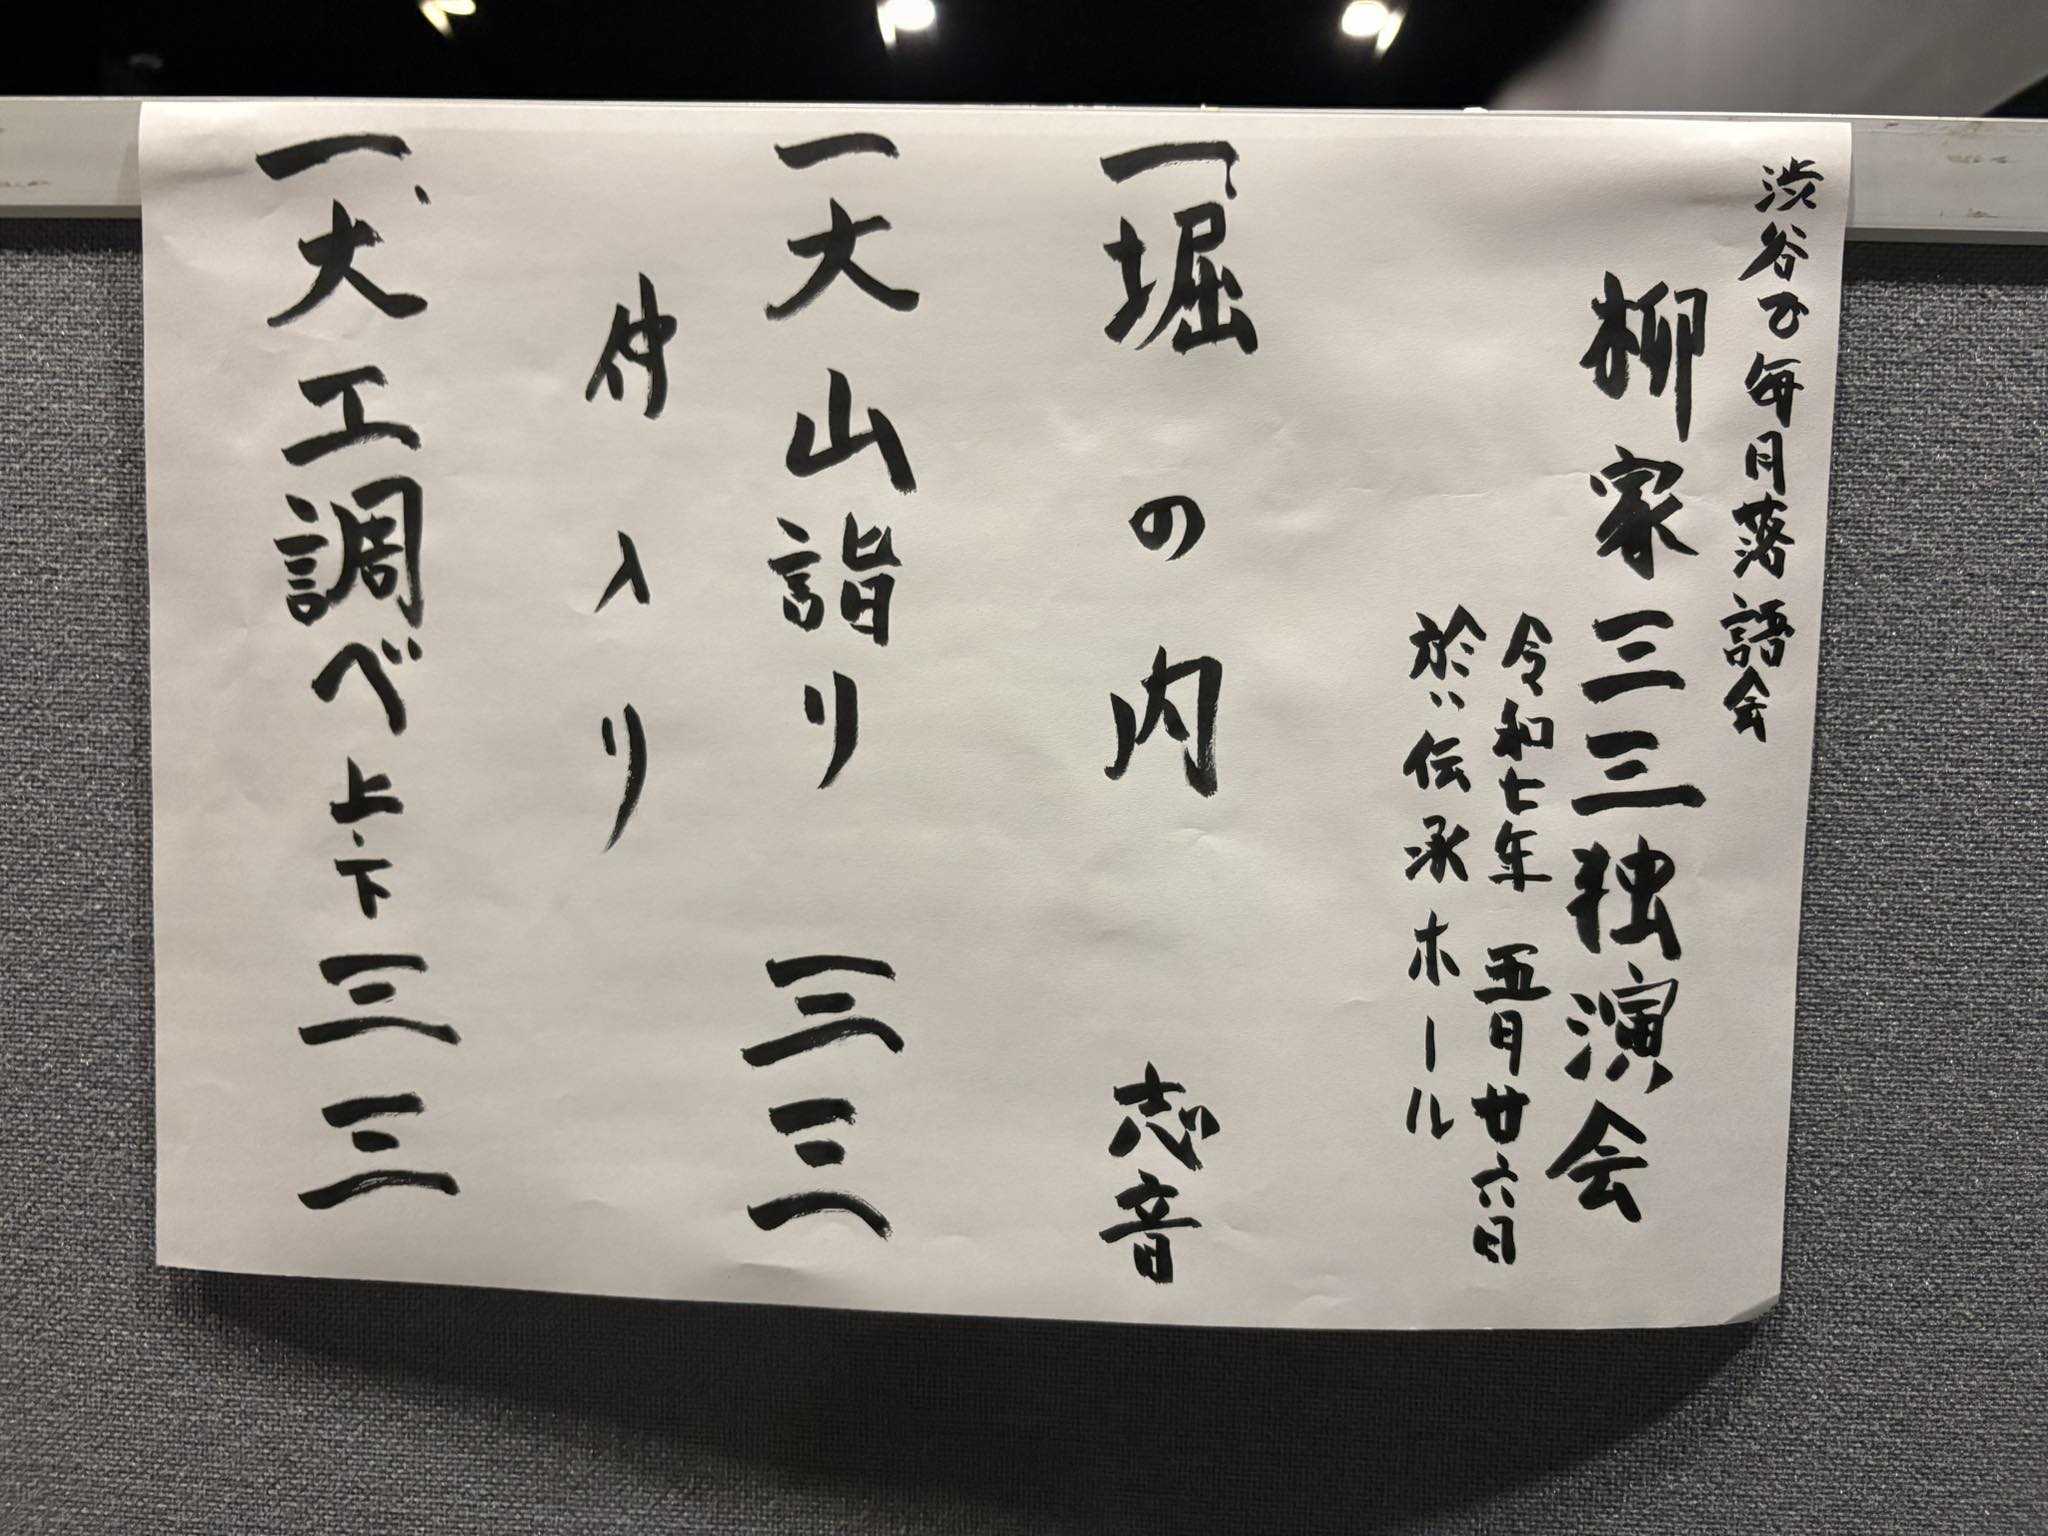 渋谷で毎月落語会
柳家三三独演会
令和七年 五月廿六日
於:伝承ホール
一堀の内 志音
一大山詣り 三三
仲入り
一大工調べ 上・下 三三